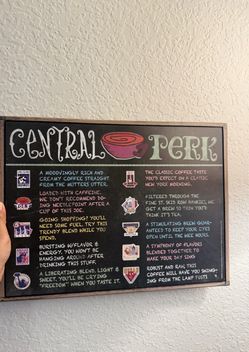 CENTRAL PERK
A MOOOVINGLY RICH AND
CREAMY COFFEE STRAIGHT
FROM THE MUTTERS UTTER.
LOADED WITH CAFFEINE.
WE DON'T RECOMMEND DO-
ING NEEDLEPOINT AFTER A
CUP OF THIS JOE.
GOING SHOPPING? YOU'LL
NEED SOME FUEL, TRY THIS
TRENDY BLEND WHILE YOU
SPEND.
BURSTING W/FLAVOR &
ENERGY, YOU WON'T BE
HANGING AROUND AFTER
DRINKING THIS STUFF.
A LIBERATING BLEND, LIGHT &
SWEET. YOU'LL BE CRYING
"FREEDOM" WHEN YOU TASTE IT.
THE CLASSIC COFFEE TASTE
YOU'D EXPECT ON A CLASSIC
NEW YORK MORNING.
FILTERED THROUGH THE
FINEST
WE
GET A BREW SO THIN YOU'LL
THINK IT'S TEA.
A STIMULATING BREW GUAR-
ANTEED TO KEEP YOUR EYES
OPEN UNTIL THE WEE HOURS.
A SYMPHONY OF FLAVORS
BLENDED TOGETHER TO
MAKE YOUR DAY SING
ROBUST AND RICH THIS
COFFEE WILL HAVE YOU SWING-
ING FROM THE LAMP POSTS